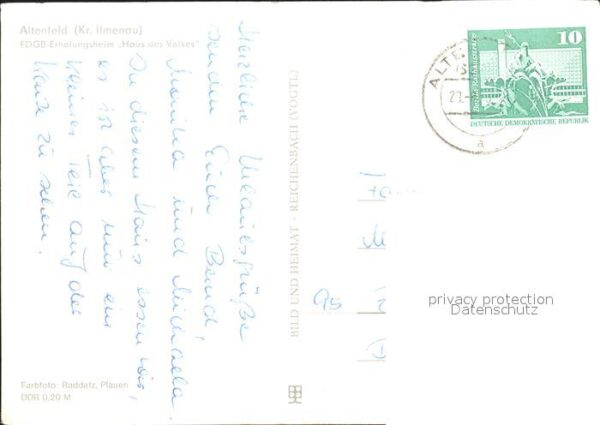 Altenfeld (Kr. Ilmenau)
FDGB-Erholungsheim „Haus des Volkes"
Herzliche Urlaubsgrüße
senden Euch Bernd,
Monika und Michaela
In diesem Haus essen wir,
es ist aber nur ein
kleiner Teil auf der
Karte zu sehen.
BILD UND HEIMAT · REICHENBACH (VOGTL)
Farbfoto: Raddatz, Plauen
DDR 0,20 M
ALTE
23.
a
10
Berlin · Rathausstrasse
DEUTSCHE DEMOKRATISCHE REPUBLIK
95
privacy protection
Datenschutz